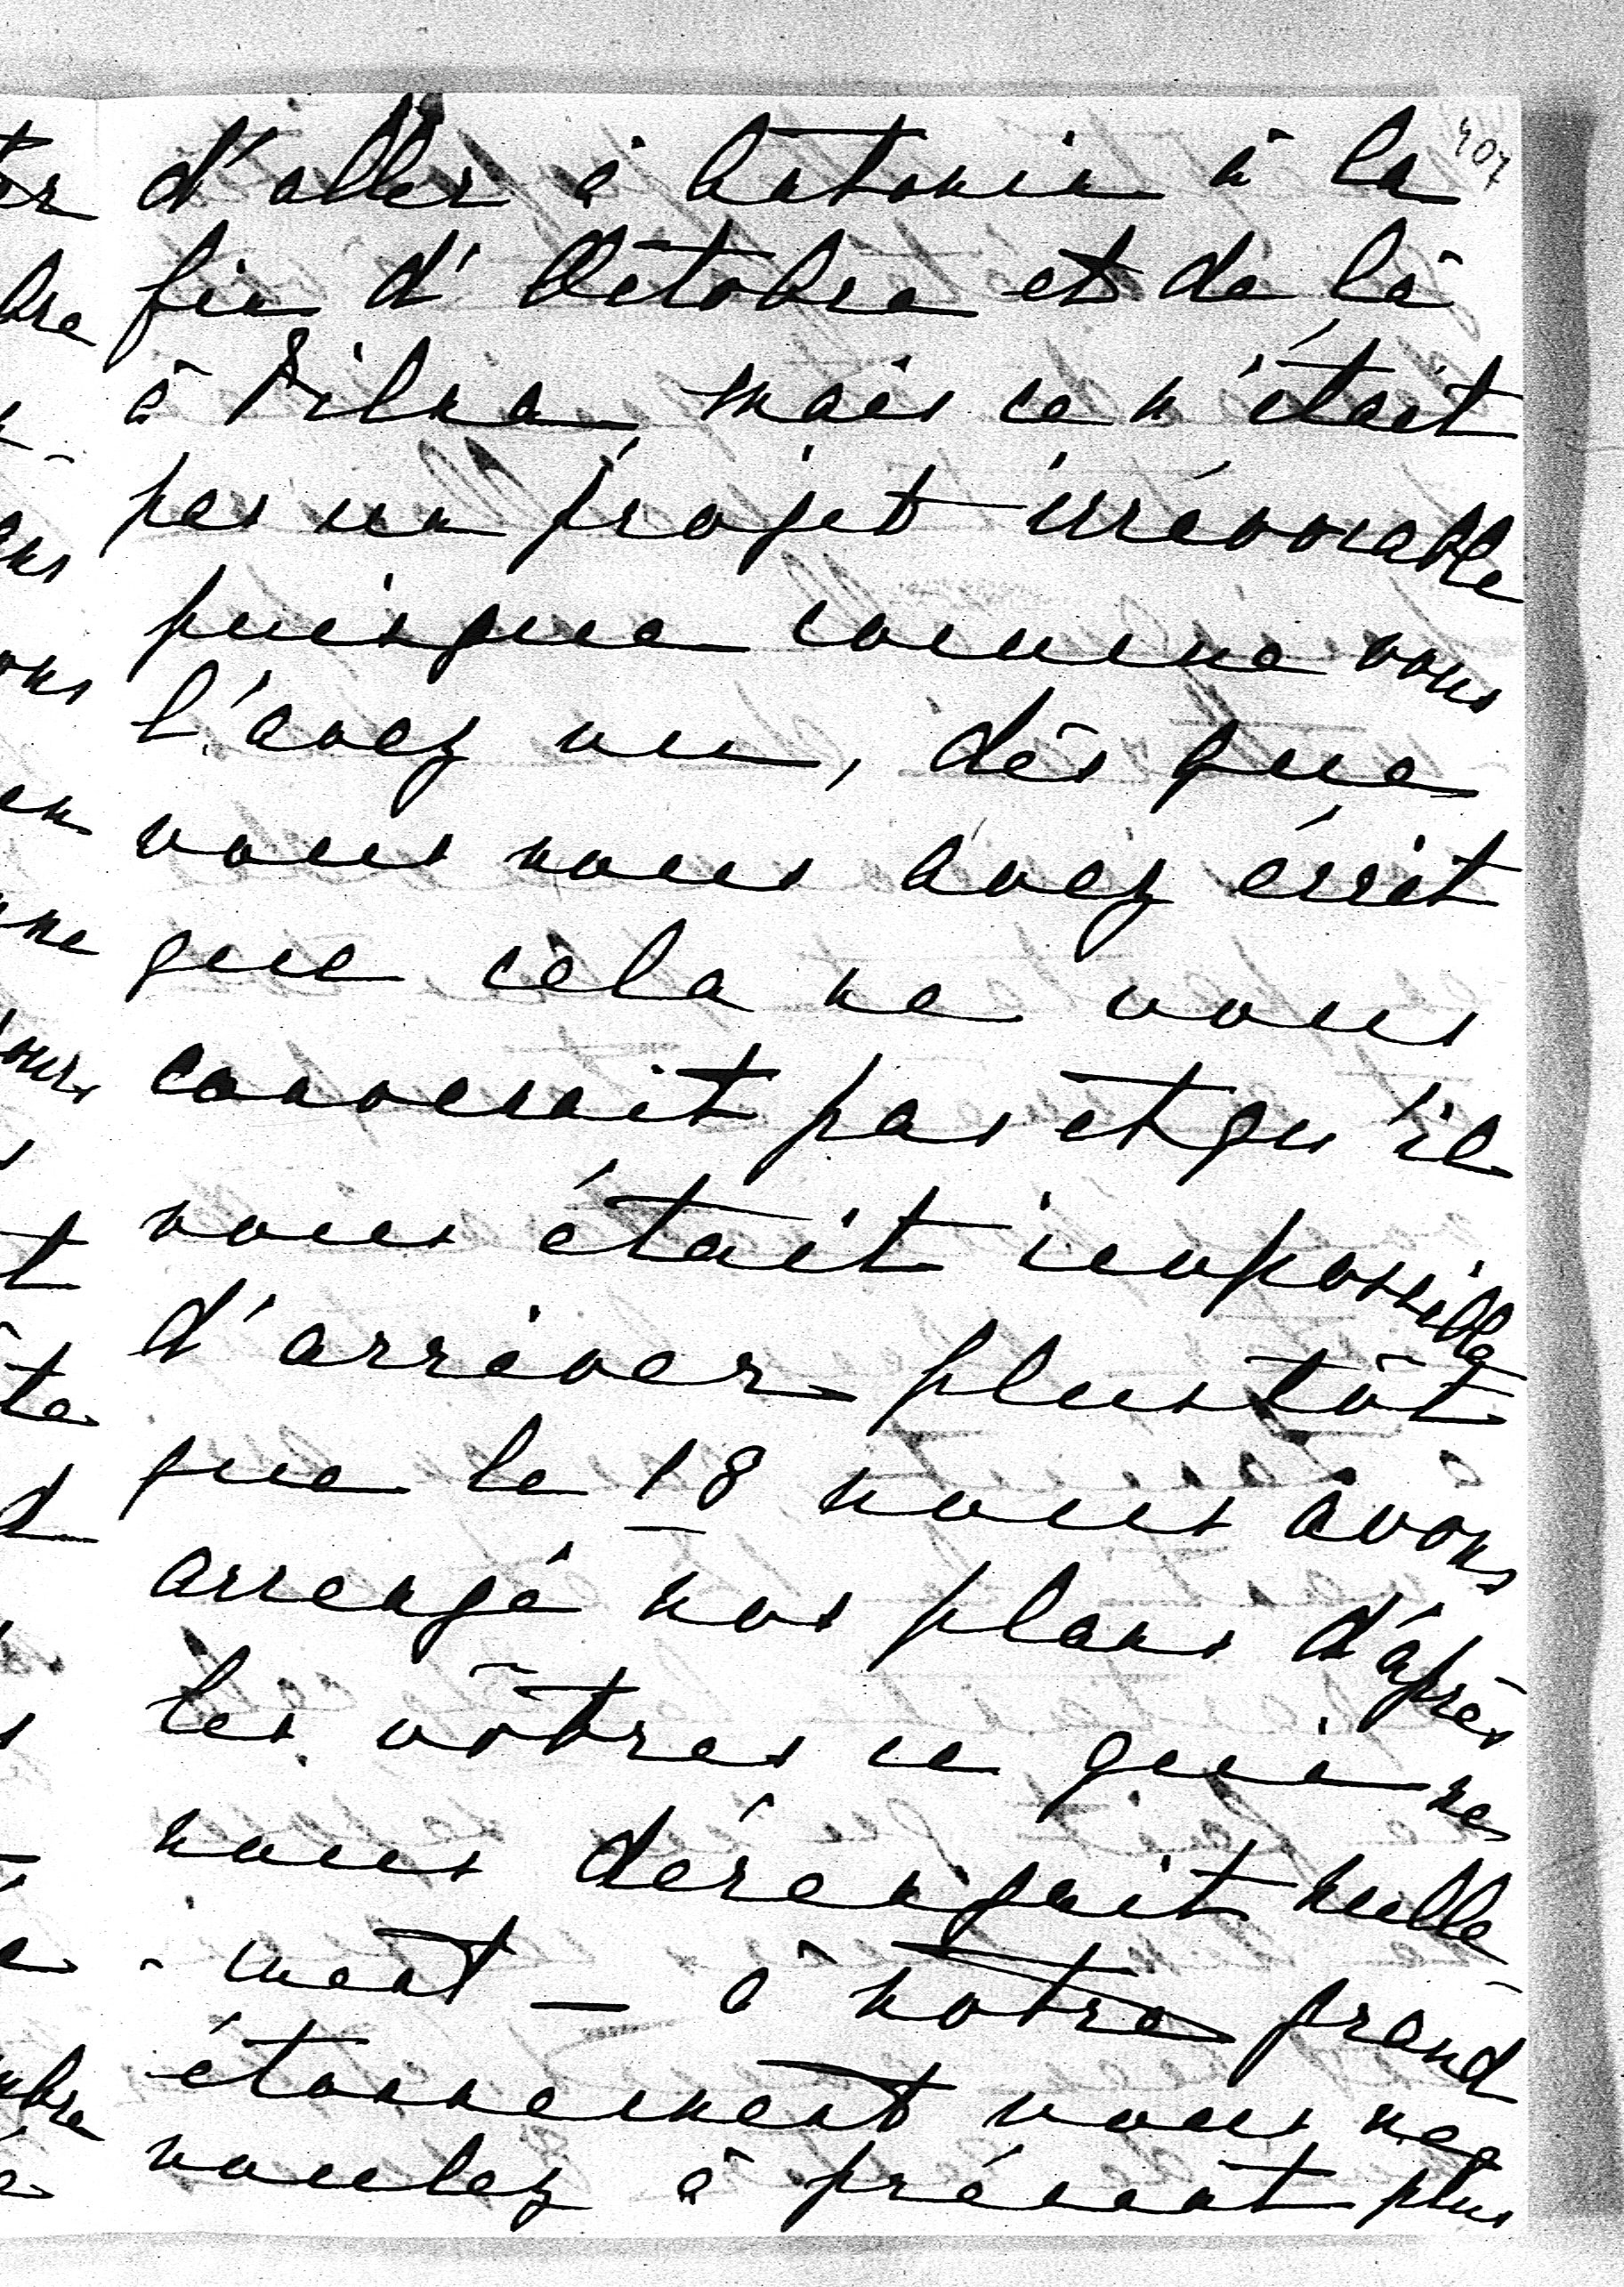 407
d'aller à Antonin à la
fin d'Octobre et de là
à Vilna, mais ce n'était
pas un projet irrévocable
puisque comme vous
l'avez vu, dès que
vous nous avez écrit
que cela ne vous
convenait pas et qu'il
vous était impossible
d'arriver plustôt
que le 18 nous avons
arrangé nos plans d'après
les vôtres ce qui ne
nous dérangait nulle-
-ment — à notre grand
étonnement vous ne
voulez à présent plus